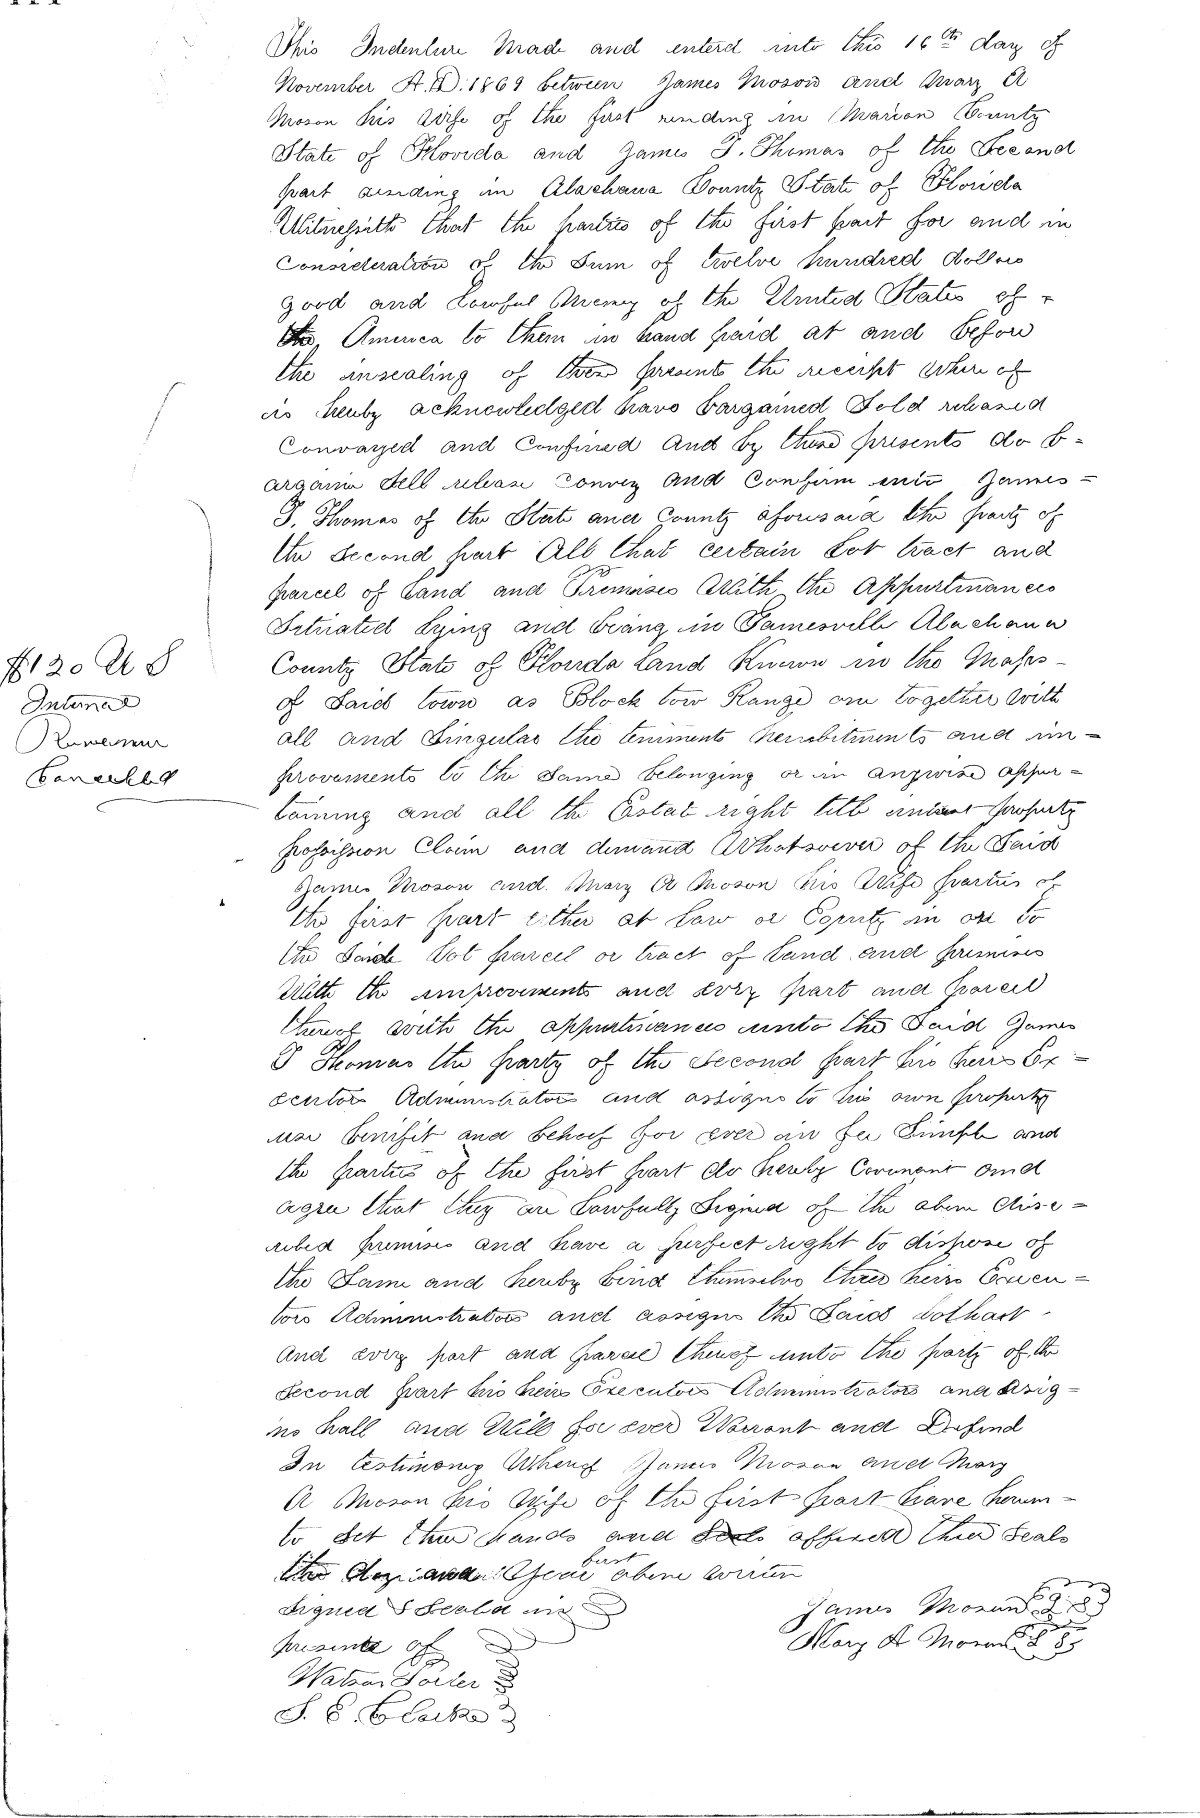 This Indenture Made and enterd into this 16th day of
November A.D. 1869 between James Moson and Mary A
Moson his Wife of the first residing in Marion County
State of Florida and James T. Thomas of the Second
part residing in Alachaua County State of Florida
Witnessith that the parties of the first part for and in
Consideration of the Sum of twelve hundred dollars
good and Lawful Money of the United States of
America to them in hand paid at and before
the insealing of these presents the receipt where of
is hereby acknowledged have bargained Sold released
Convayed and Confired And by these presents do b-
argain Sell release Convey and Confirm unto James-
T. Thomas of the State and County aforesaid the party of
the Second part All that certain Lot tract and
parcel of Land and Premises With the Appurtinances
Situated lying and being in Gainesville Alachaua
County State of Florida Land Known in the Maps-
of Said town as Block tow Range one together with
all and Singular the teniments herrebitments and im-
provements to the Same belonging or in anywise appur-
taining and all the Estat right title intrest property
possission Claim and demand Whatsoever of the Said
James Moson and Mary A Moson his Wife parties of
the first part either at Law or Equity in or to
the Said Lot parcel or tract of Land and premises
With the improvements and every part and parcel
thereof with the appurtinances unto the Said James
T Thomas the party of the Second part his heirs Ex-
ecutors Administrators and assigns to his own property
use benifit and behoof for ever in fee Simple and
the parties of the first part do hereby Covenant and
agree that they are Lawfully Signed of the above disc-
ribed premises and have a perfect right to dispose of
the Same and hereby bind themselvs thier heirs Execu-
tors Administrators and assigns the Said
And every part and parcel thereof unto the party of the
Second part his heirs Executors Administrators and Asig-
ns hall and Will for ever Warrant and Defend
In testimony Whereof James Moson and Mary
A Moson his Wife of the first part have herein-
to Set thier hands and affixed thier Seals
the day and Year first above writen
Signed & Sealed in
presence of
Watson Porter
S. C. Clarke
James Moson L S
Mary A Moson L S
$1.20 U S
Internal
Revenue
Cancelled